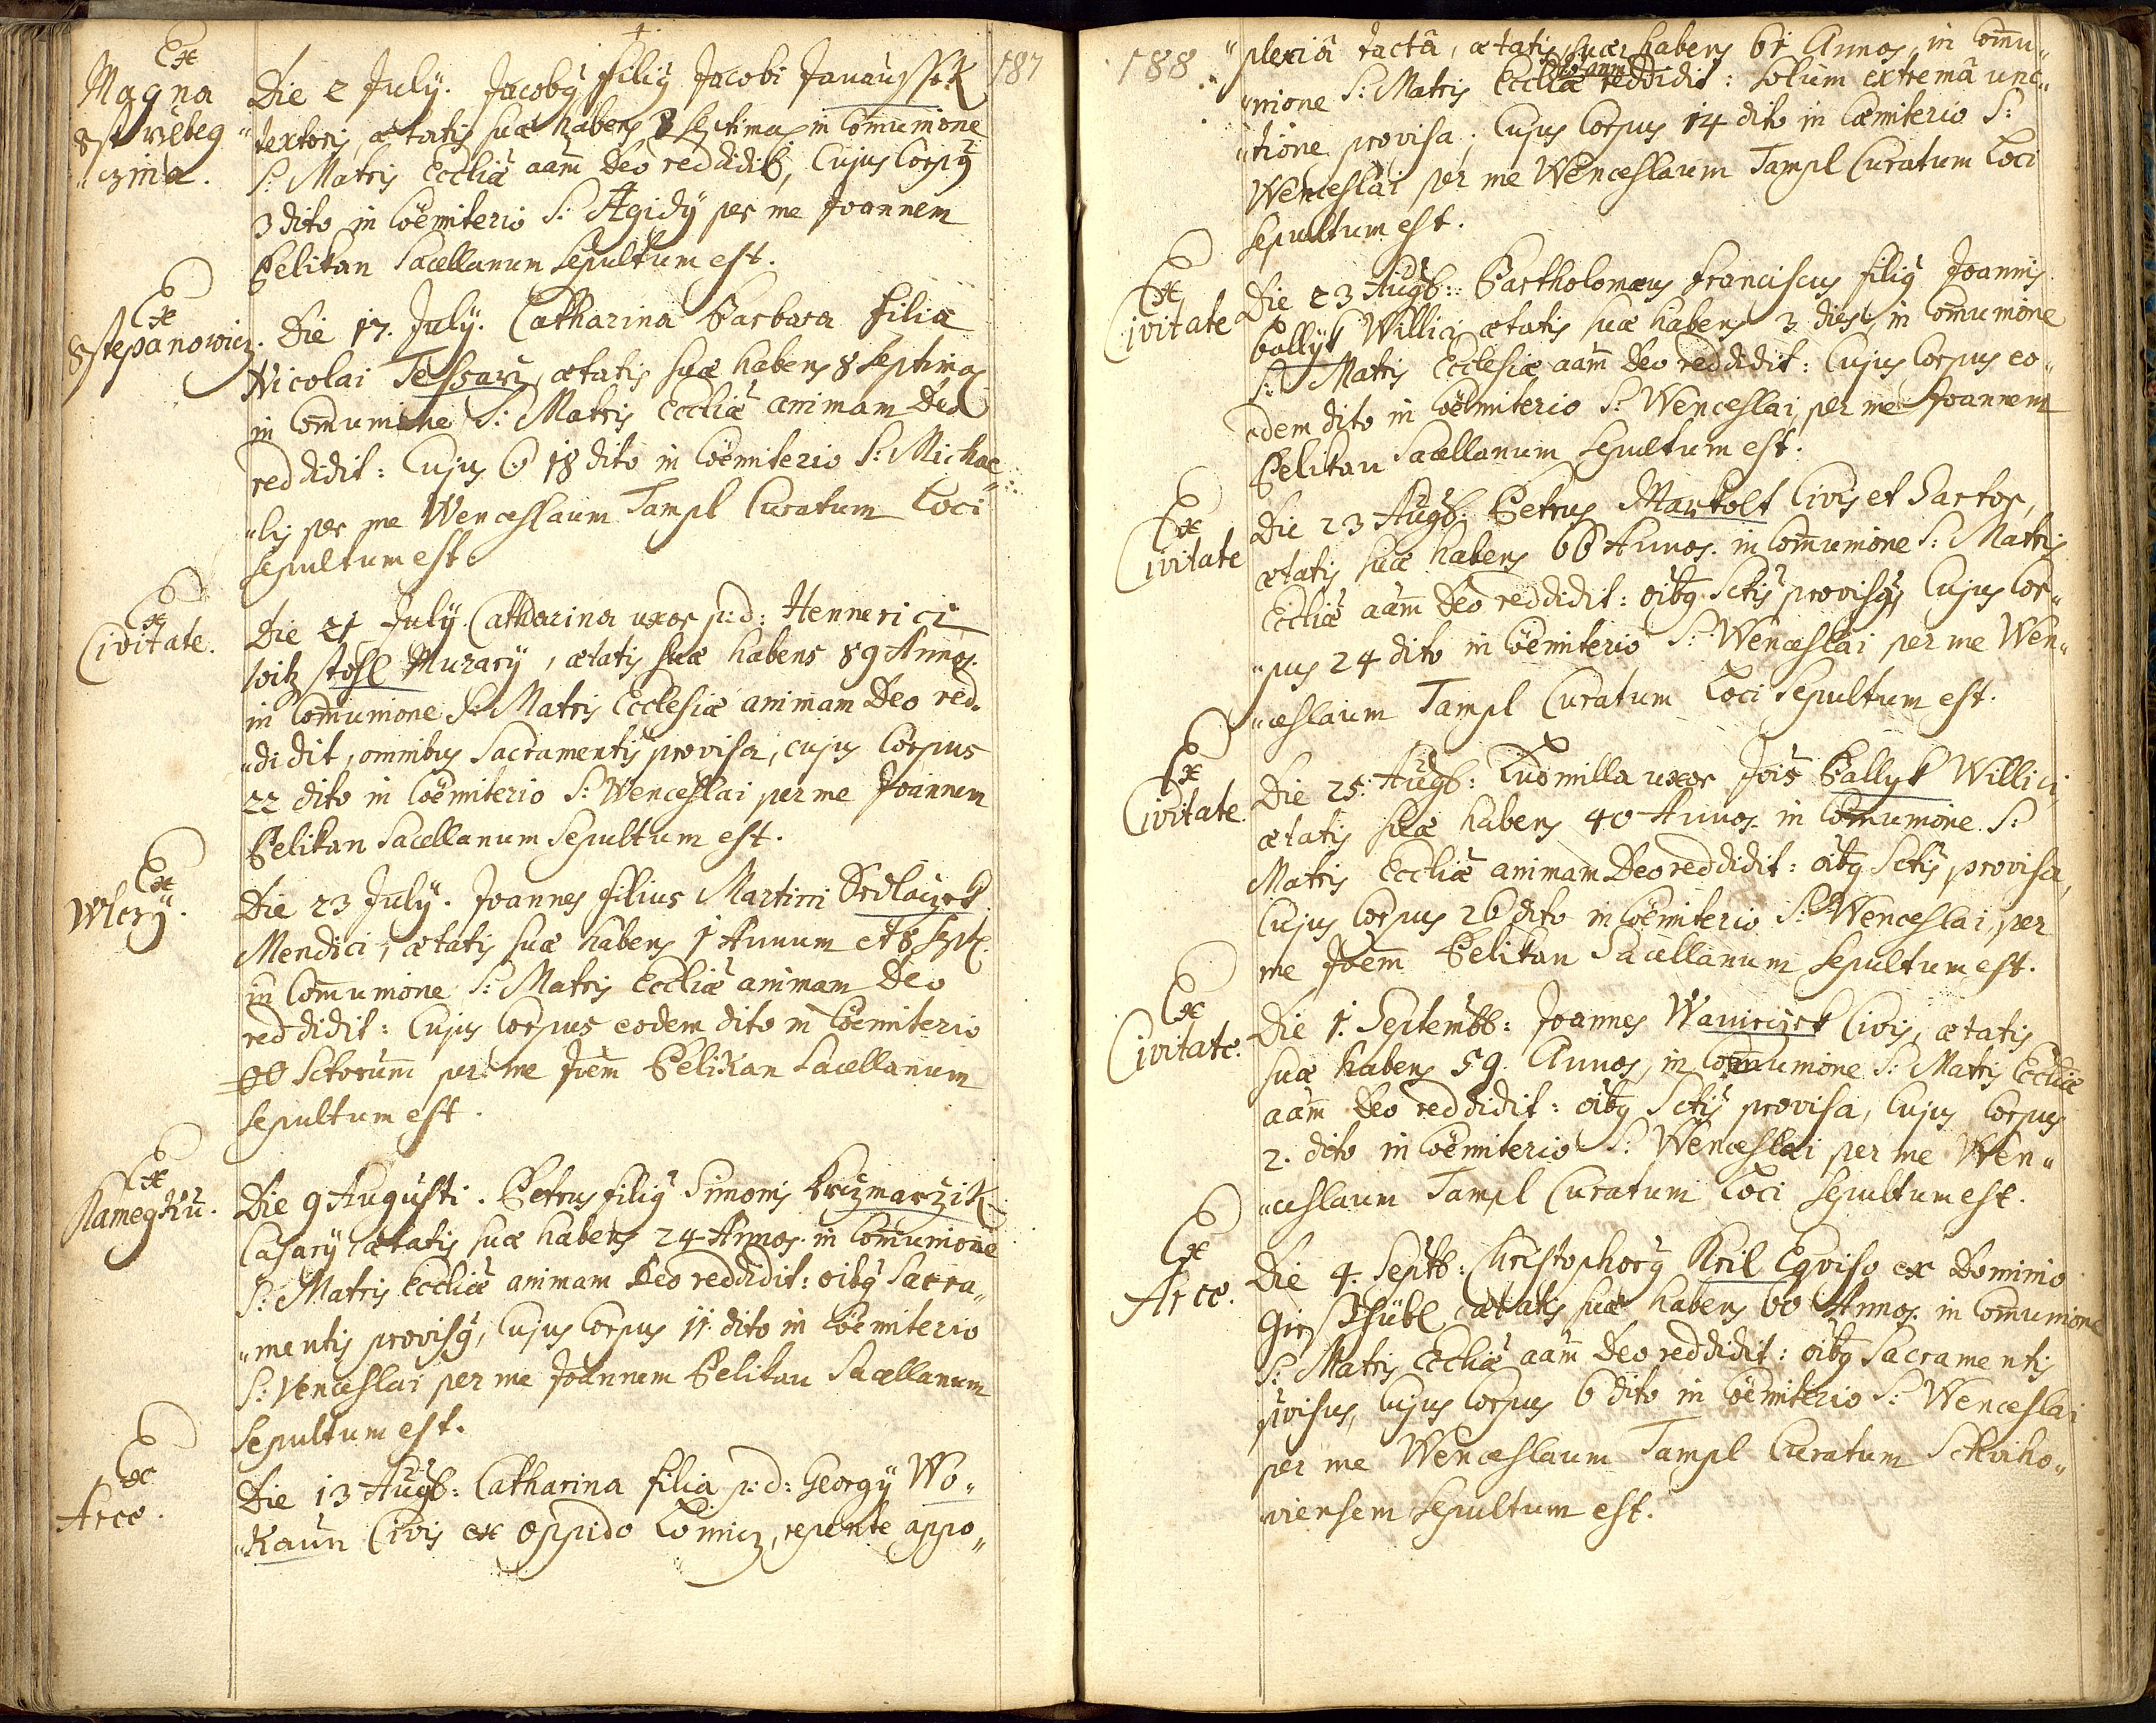 187
Ex
Magna
Die 2 July. Jacobỹ filiỹ Jacobi Janaussek
textoris, ætatis suæ habens 8 septimas in Comunione
S: Matris Eccliæ aam Deo reddidit, Cujus Corpỹ
3 dito in Coëmiterio S: Ægidÿ per me Joannem
Pelikan Sacellanum Sepultum est.
Ex
Sstepanowicz.
Die 17. July. Catharina Barbara filia
Nicolai ætatis suæ habens 8 septimas
in Comunione S: Matris Eccliæ animam Deo
reddidit: Cujus C: 18 dito in Coëmiterio S: Michae„
„lis per me Wenceslaum Tampl Curatum Loci
sepultum est.
Ex
Civitate.
Die 21 July. Catharina uxor p:d: Hennerici
Stosl Murarÿ, ætatis suæ habens 89 Annos.
in Comunione S: Matris Ecclesiæ animam Deo red„
„didit, omnibus Sacramentis provisa, cujus Corpus
22 dito in Coëmiterio S: Wenceslai per me Joannem
Pelikan Sacellanum Sepultum est.
Ex
Wlczy.
Die 23 July. Joannes filius Martini Sedlaczek
Mendici, ætatis suæ habens 1 Annum et 8 sept.
in Comunione S: Matris Eccliæ animam Deo
reddidit: Cujus Corpus eodem dito in Coëmiterio
OO Sctorum per me Joem Pelikan Sacellanum
sepultum est.
Ex
Kamegku.
Die 9 Augusti. Petrus filiỹ Simonis Krizmarzik
Casarÿ ætatis suæ habens 24 Annos in Comunione
S: Matris Eccliæ animam Deo reddidit: oibỹ Sacra„
„mentis provisỹ, Cujus Corpus 11. dito in Coëmiterio
S: Venceslai per me Joannem Pelikan Sacellanum
Sepultum est.
Ex
Arce.
Die 13 Augb: Catharina filia p:d: Georgÿ Wo„
„kaun Civis ex oppido Lomicz, repente appo„
188
„plexiâ tactâ, ætatis suæ habens 61 Annos, in Comu„
„nione S: Matris Eccliæ reddidit: solum extremâ unc„
„tione provisa; Cujus Corpus 14 dito in Cœmiterio S:
Wenceslai per me Wenceslaum Tampl Curatum Loci
sepultum est.
Ex
Civitate
Die 23 Augb: Bartholomæus Franciscus filiỹ Joannis
Ballyk Willici ætatis suæ habens 3 dies, in Comunione
S: Matris Ecclesiæ aam Deo reddidit: Cujus Corpus eo„
„dem dito in Coëmiterio S: Wenceslai per me Joannem
Pelikan Sacellanum Sepultum est.
Ex
Civitate
Die 23 Augb. Petrus Markolt Civis et Sartor,
ætatis suæ habens 66 Annos. in Comunione S: Matris
Eccliæ aam Deo reddidit: oibỹ Sctis provisỹ, Cujus Cor„
„pus 24 dito in Coëmiterio S: Wenceslai per me Wen„
„ceslaum Tampl Curatum Loci Sepultum est.
Ex
Civitate.
Die 25. Augb: Ludmilla uxor Jois Ballyk Willici,
ætatis suæ habens 40 Annos. in Comunione S:
Matris Eccliæ animam Deo reddidit: oibỹ Sctis provisa,
Cujus Corpus 26 dito in Coëmiterio S: Wenceslai, per
me Joem Pelikan Sacellanum sepultum est.
Ex
Civitate.
Die 1. Septembb: Joannes Civis, ætatis
suæ habens 59. Annos, in Comunione S: Matris Eccliæ
aam Deo reddidit: oibỹ Sctis provisa, Cujus Corpus
2. dito in Coëmiterio S: Wenceslai per me Wen„
„ceslaum Tampl Curatum Loci sepultum est.
Ex
Arce.
Die 4. Septb: Christophorỹ Kril Eqviso ex Dominio
ætatis suæ habens 60 Annos. in Comunione
S: Matris Eccliæ aam Deo reddidit: oibỹ Sacramentis
pvisus, Cujus Corpus 6 dito in Coëmiterio S: Wenceslai
per me Wenceslaum Tampl Curatum Schwiho„
„viensem sepultum est.